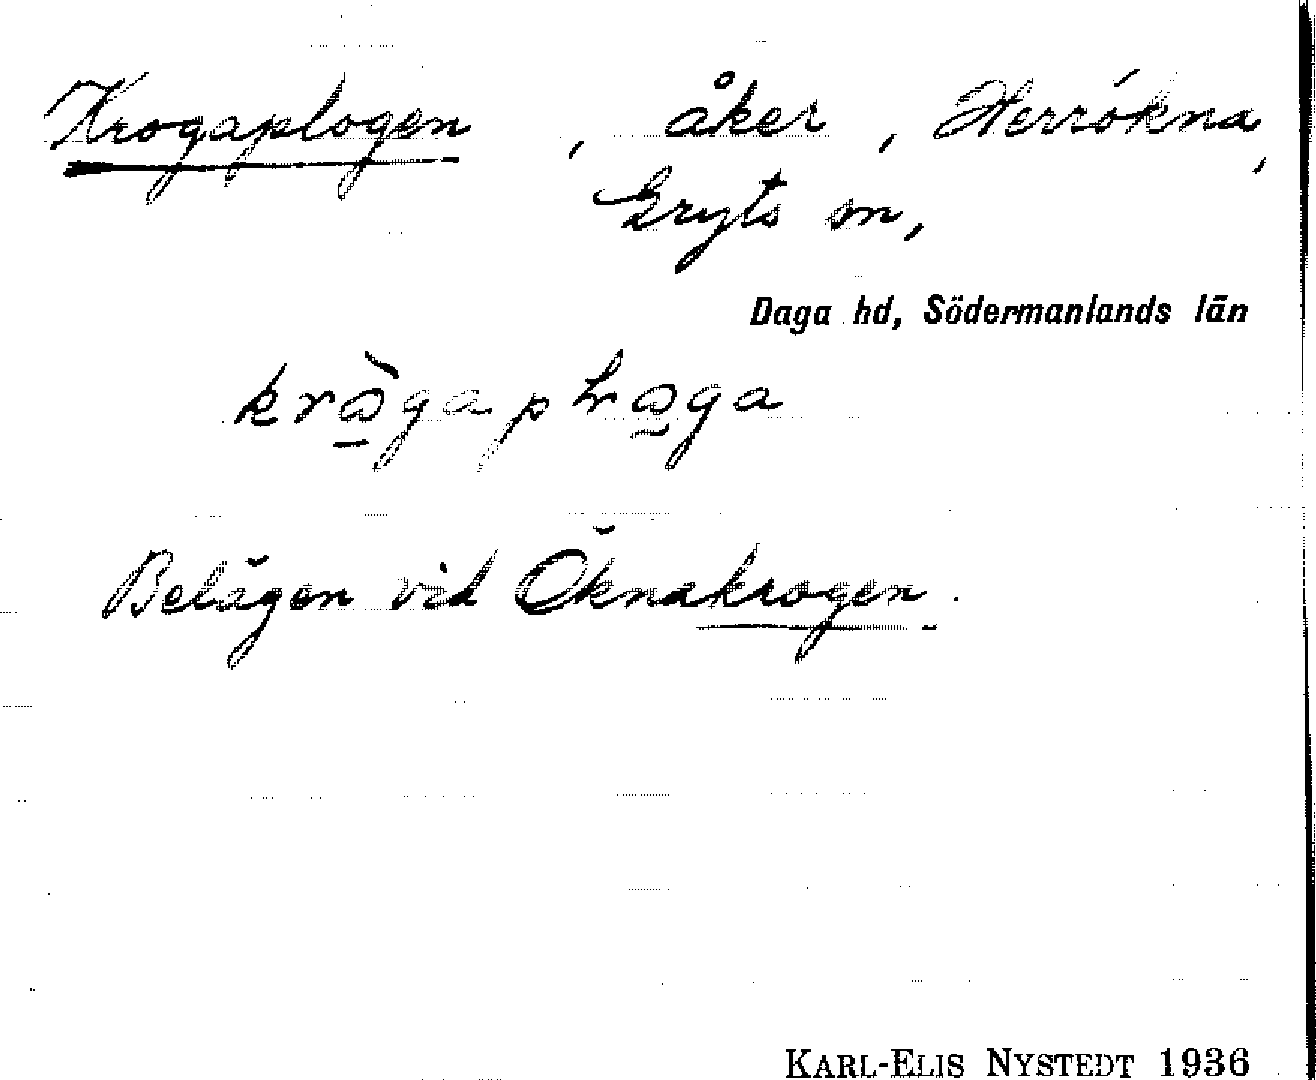 Krogaplogen , åker , Herrökna,
Gryts sn,
Daga hd, Södermanlands län
Belägen vid Öknakrogen.
KARL-ELIS NYSTEDT 1936